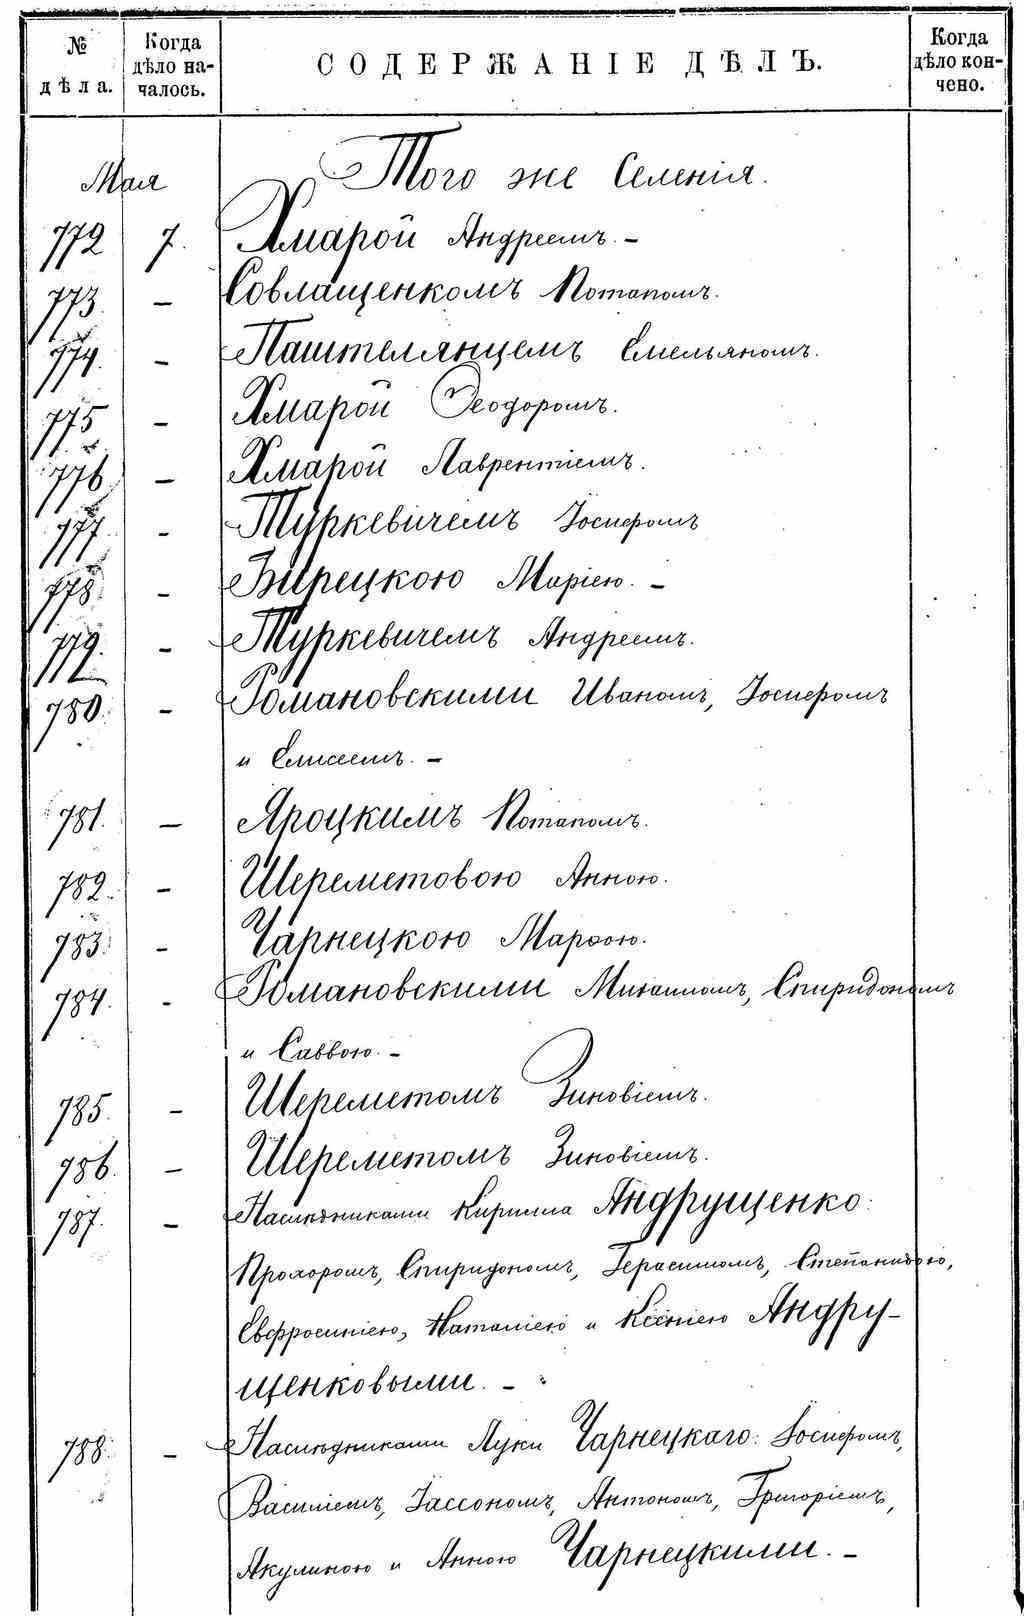 № дѣла. Когда дѣло началось. СОДЕРЖАНІЕ ДѢЛЪ. Когда дѣло кончено.
Мая Того же Селенія.
772 7. Хмарой Андреемъ. –
773. – Совлащенкомъ Потапомъ.
774. – Паштелянцемъ Емельяномъ.
775 – Хмарой Ѳеодоромъ.
776 – Хмарой Лаврентіемъ.
777. – Туркевичемъ Іосифомъ
778. – Зирецкою Маріею. –
779. – Туркевичемъ Андреемъ.
780. – Романовскими Иваномъ, Іосифомъ
и Елисеемъ. –
781. – Яроцкимъ Потапомъ.
782. – Шереметовою Анною.
783. – Чарнецкою Марѳою.
784. – Романовскими Михаиломъ, Спиридономъ
и Саввою. –
785. – Шереметомъ Зиновіемъ.
786. – Шереметомъ Зиновіемъ.
787. – Наслѣдниками Кирилла Андрущенко:
Прохоромъ, Спиридономъ, Герасимомъ, Степанидою,
Евфросиніею, Наталіею и Ксеніею Андру-
щенковыми. –
788. – Наслѣдниками Луки Чарнецкаго: Іосифомъ,
Василіемъ, Іассономъ, Антономъ, Григоріемъ,
Акулиною и Анною Чарнецкими. –